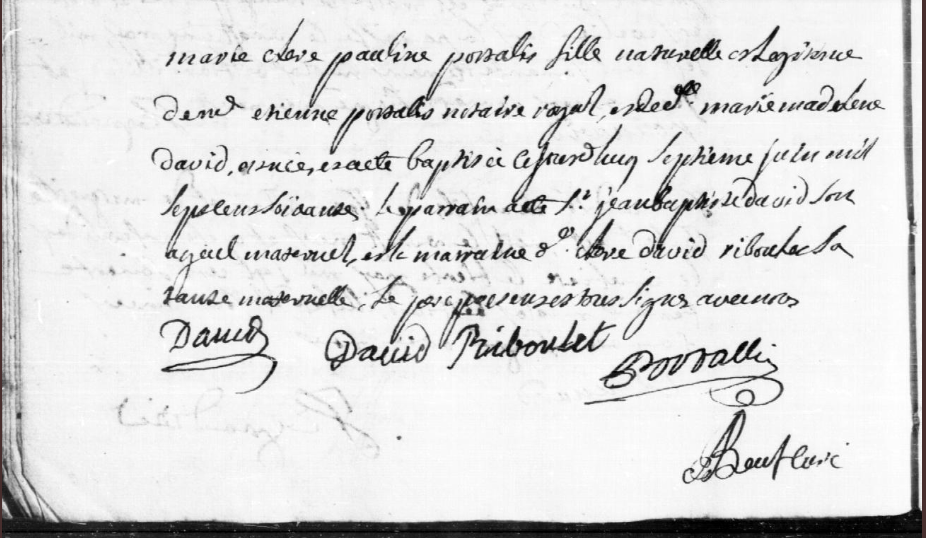 marie clere pauline portalis fille naturelle et legitime
de mr etienne portalis notaire royal, et de dlle marie madelene
david, est née, et a eté baptisée cejourdhuy septieme juin mil
sept cens soixante, le parrain a eté sr jean baptiste david son
ayeul maternel, et la marraine de clere david riboulet sa
tante maternelle, le pere present et tous signes avec nous
David
David Riboulet
Portallis
curé